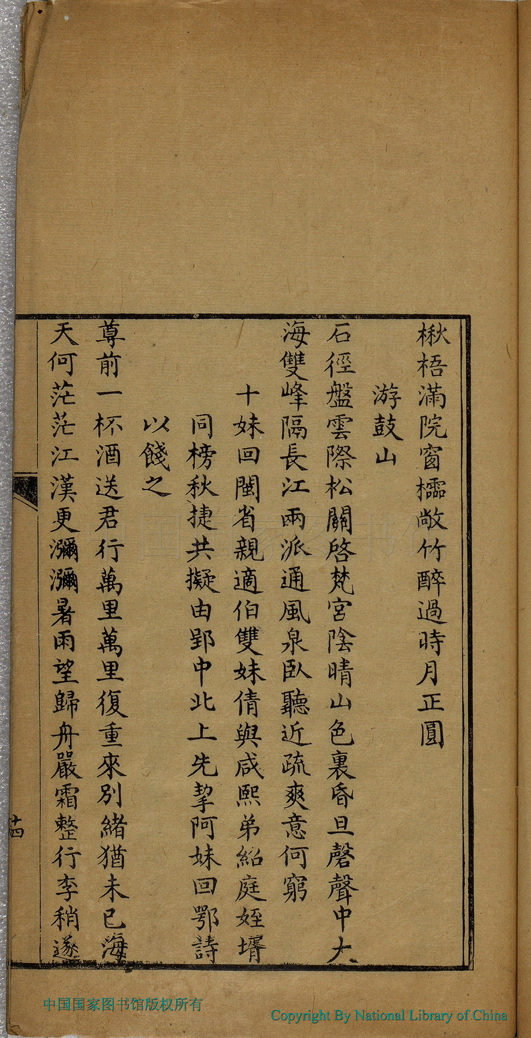 楸梧滿院窗櫺敞竹醉過時月正圓
游鼓山
石徑盤雲際松關啓梵宮陰晴山色裏昏旦磬聲中大
海雙峰隔長江兩派通風泉臥聽近疏爽意何窮
十妹回閩省親適伯雙妹倩與咸熙弟紹庭姪壻
同榜秋捷共擬由郢中北上先挈阿妹回鄂詩
以餞之
尊前一杯酒送君行萬里萬里復重來別緒猶未已海
天何茫茫江漢更瀰瀰暑雨望歸舟嚴霜整行李稍遂
十四
中国国家图书馆版权所有
Copyright By National Library of China